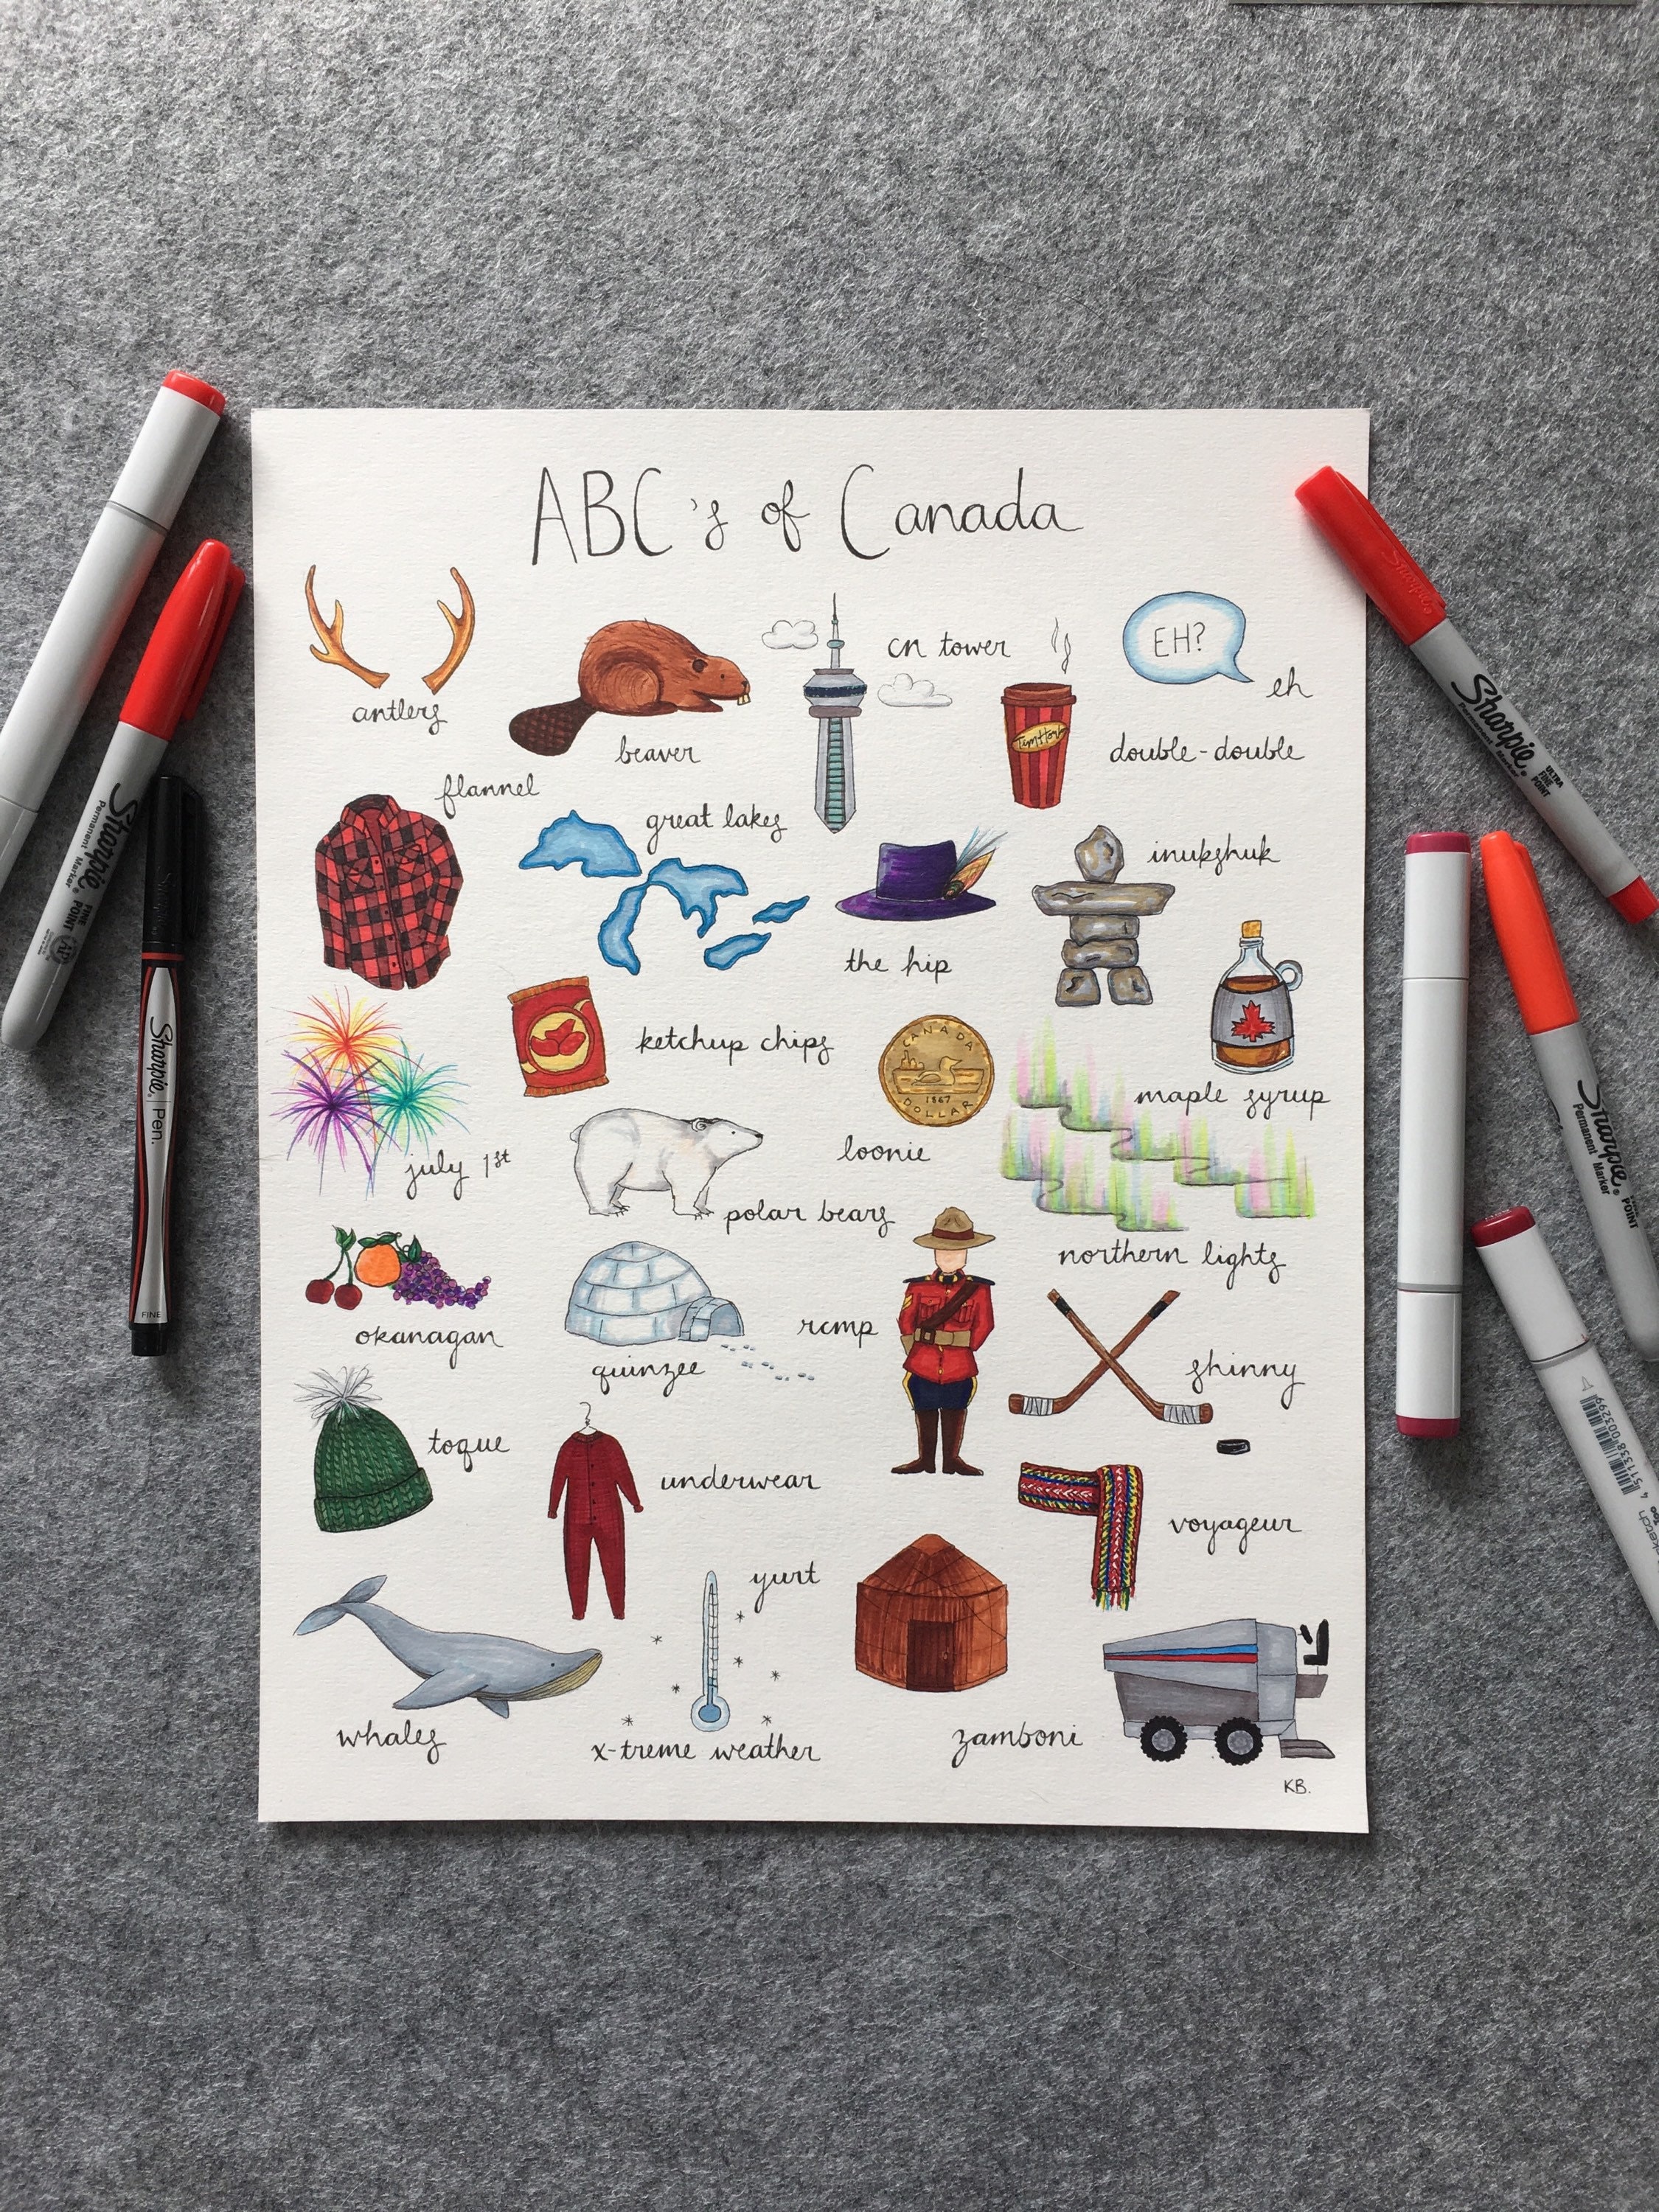 ABC's of Canada
antlers
beaver
cn tower
Tim Hortons
double-double
EH?
eh
flannel
great lakes
the hip
inukshuk
july 1st
ketchup chips
CANADA
1867
DOLLAR
loonie
maple syrup
northern lights
okanagan
polar bears
quinzee
rcmp
skinny
toque
underwear
voyageur
whales
x-treme weather
yurt
zamboni
KB.
Sharpie
Permanent Marker
FINE
POINT
AP
Sharpie Pen.
FINE
Sharpie
Sharpie
Permanent Marker
ULTRA
FINE
POINT
Sharpie
Permanent Marker
POINT
4 511338 003299